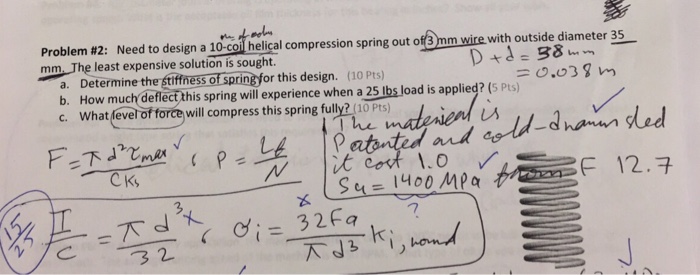 m of coils
Problem #2: Need to design a 10-coil helical compression spring out of 3 mm wire with outside diameter 35
mm. The least expensive solution is sought.
D + d = 38 mm
= 0.038 m
a. Determine the stiffness of spring for this design. (10 Pts)
b. How much deflect this spring will experience when a 25 lbs load is applied? (5 Pts)
c. What level of force will compress this spring fully? (10 Pts)
The material is
Patented and cold-drawn steel
it cost 1.0
Su = 1400 MPa from F 12.7
F = π d² τmax / C Ks , P = Lf / N
15/25
I/C = π d³ / 32 , σi = 32Fa / π d³ Ki, wound
x
x
?